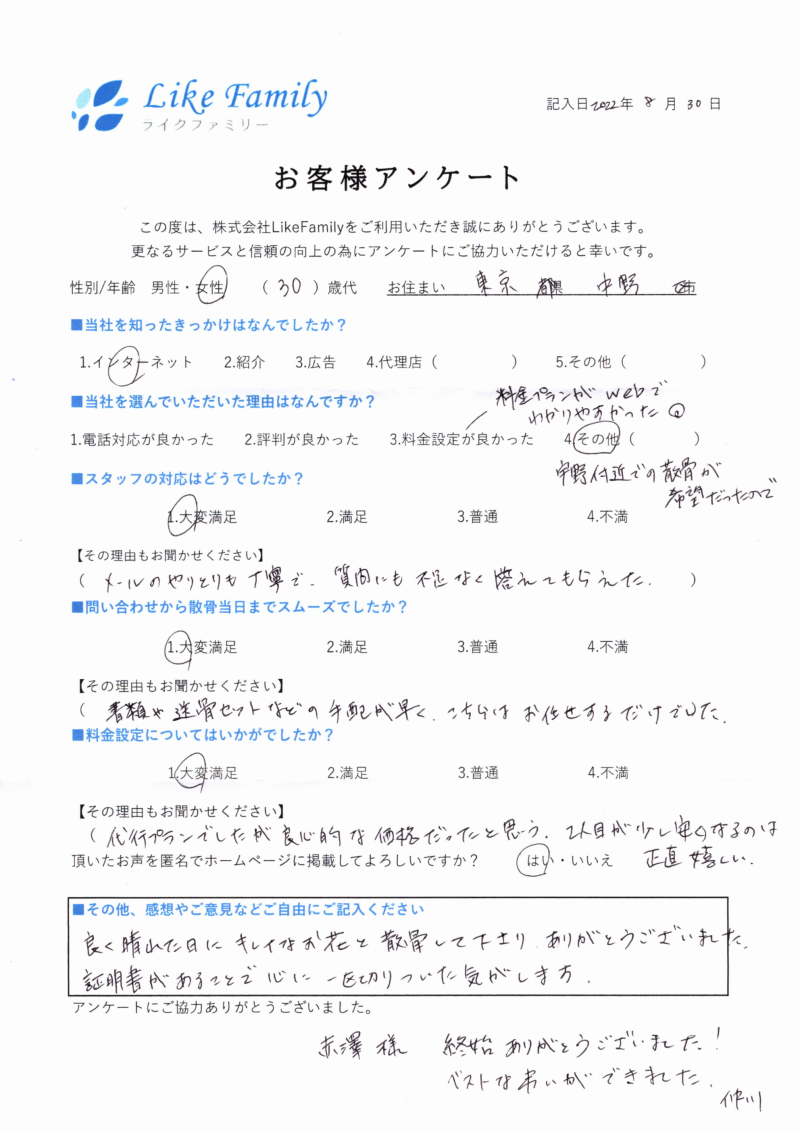 Like Family
ライクファミリー
記入日2022年 8 月 30 日
お客様アンケート
この度は、株式会社LikeFamilyをご利用いただき誠にありがとうございます。
更なるサービスと信頼の向上の為にアンケートにご協力いただけると幸いです。
性別/年齢 男性・女性 ( 30 ) 歳代 お住まい 東京 都県 中野 区市
■当社を知ったきっかけはなんでしたか？
1.インターネット 2.紹介 3.広告 4.代理店 ( ) 5.その他 ( )
■当社を選んでいただいた理由はなんですか？
料金プランがwebで
わかりやすかった
1.電話対応が良かった 2.評判が良かった 3.料金設定が良かった 4.その他 ( )
■スタッフの対応はどうでしたか？
宇野付近での散骨が
希望だったので
1.大変満足 2.満足 3.普通 4.不満
【その理由もお聞かせください】
( メールのやりとりも丁寧で、質問にも不足なく答えてもらえた. )
■問い合わせから散骨当日までスムーズでしたか？
1.大変満足 2.満足 3.普通 4.不満
【その理由もお聞かせください】
( 書類や送骨セットなどの手配が早く、こちらはお任せするだけでした.
■料金設定についてはいかがでしたか？
1.大変満足 2.満足 3.普通 4.不満
【その理由もお聞かせください】
( 代行プランでしたが良心的な価格だったと思う. 2人目が少し安くなるのは
頂いたお声を匿名でホームページに掲載してよろしいですか？ はい・いいえ 正直嬉しい.
■その他、感想やご意見などご自由にご記入ください
良く晴れた日にキレイなお花と散骨して下さり、ありがとうございました.
証明書があることで心に一区切りついた気がします.
アンケートにご協力ありがとうございました。
赤澤様 終始ありがとうございました!
ベストな弔いができました.